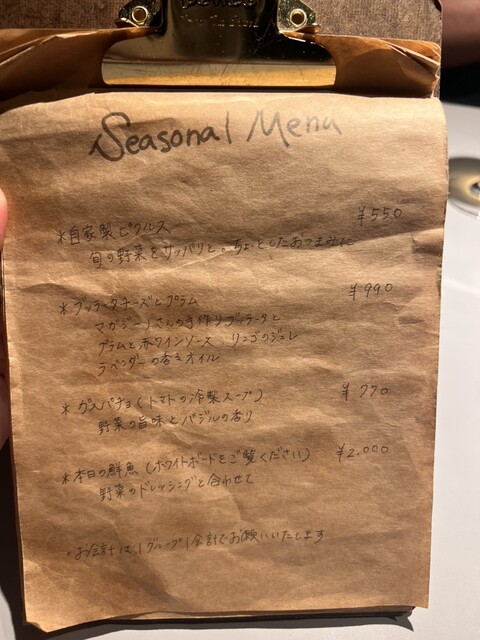 Seasonal Menu
*自家製ピクルス ¥550
旬の野菜をサッパリと。ちょっとしたおつまみに
*ブッラータチーズとプラム ¥990
マガジーノさんの手作りブッラータと
プラムと赤ワインソース リンゴのジュレ
ラベンダーの香るオイル
*ガスパチョ(トマトの冷製スープ) ¥770
野菜の旨味とバジルの香り
*本日の鮮魚(ホワイトボードをご覧ください) ¥2.000
野菜のドレッシングと合わせて
・お会計は、1グループ1会計でお願いいたします